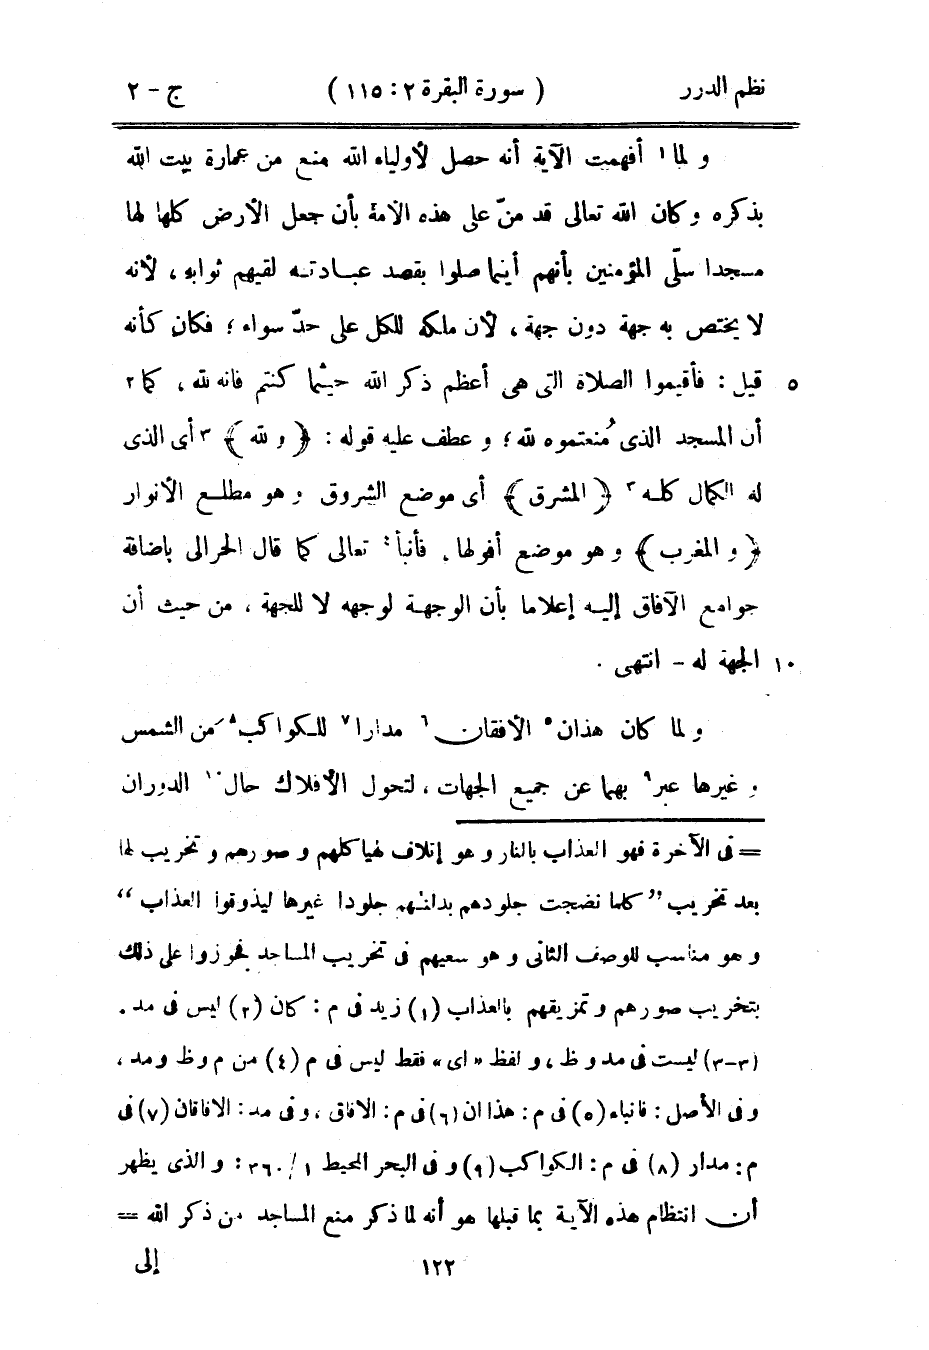 نظم الدرر ( سورة البقرة ٢ : ١١٥ ) ج - ٢
و لما١ أفهمت الآية أنه حصل لأولياء الله منع من عمارة بيت الله
بذكره و كان الله تعالى قد منّ على هذه الامة بأن جعل الأرض كلها لها
مسجدا سلّى المؤمنين بأنهم أينما صلوا بقصد عبادته لقيهم ثوابه ، لأنه
لا يختص به جهة دون جهة ، لأن ملكه للكل على حدّ سواء ؛ فكان كأنه
٥ قيل : فأقيموا الصلاة التى هى أعظم ذكر الله حيثما كنتم فانه لله ، كما٢
أن المسجد الذى مُنعتموه لله ؛ و عطف عليه قوله : ﴿ و لله ﴾ ٣ أى الذى
له الكمال كله٣ ﴿ المشرق ﴾ أى موضع الشروق و هو مطلع الأنوار
﴿ و المغرب ﴾ و هو موضع أفولها . فأنبأ٤ تعالى كما قال الحرالى باضافة
جوامع الآفاق إليه إعلاما بأن الوجهة لوجهه لا للجهة ، من حيث أن
١٠ الجهة له - انتهى .
و لما كان هذان٥ الأفقان٦ مدارا٧ للكواكب٨ من الشمس
و غيرها عبر٩ بهما عن جميع الجهات ، لتحول الأفلاك حال١٠ الدوران
= فى الآخرة فهو العذاب بالنار و هو إتلاف لهياكلهم و صورهم و تخريب لها
بعد تخريب ”كلما نضجت جلودهم بدلنهم جلودا غيرها ليذوقوا العذاب“
و هو مناسب للوصف الثانى و هو سعيهم فى تخريب المساجد فجوزوا على ذلك
بتخريب صورهم و تمزيقهم بالعذاب (١) زيد فى م : كان (٢) ليس فى مد .
(٣-٣) ليست فى مد و ظ ، و لفظ « اى » فقط ليس فى م (٤) من م و ظ و مد ،
و فى الأصل : فانباء (٥) فى م : هذا ان (٦) فى م : الافاق ، و فى مد : الافاقان (٧) فى
م : مدار (٨) فى م : الكواكب (٩) و فى البحر المحيط ١ / ٣٦٠ : و الذى يظهر
أن انتظام هذه الآية بما قبلها هو أنه لما ذكر منع المساجد من ذكر الله =
١٢٢ إلى